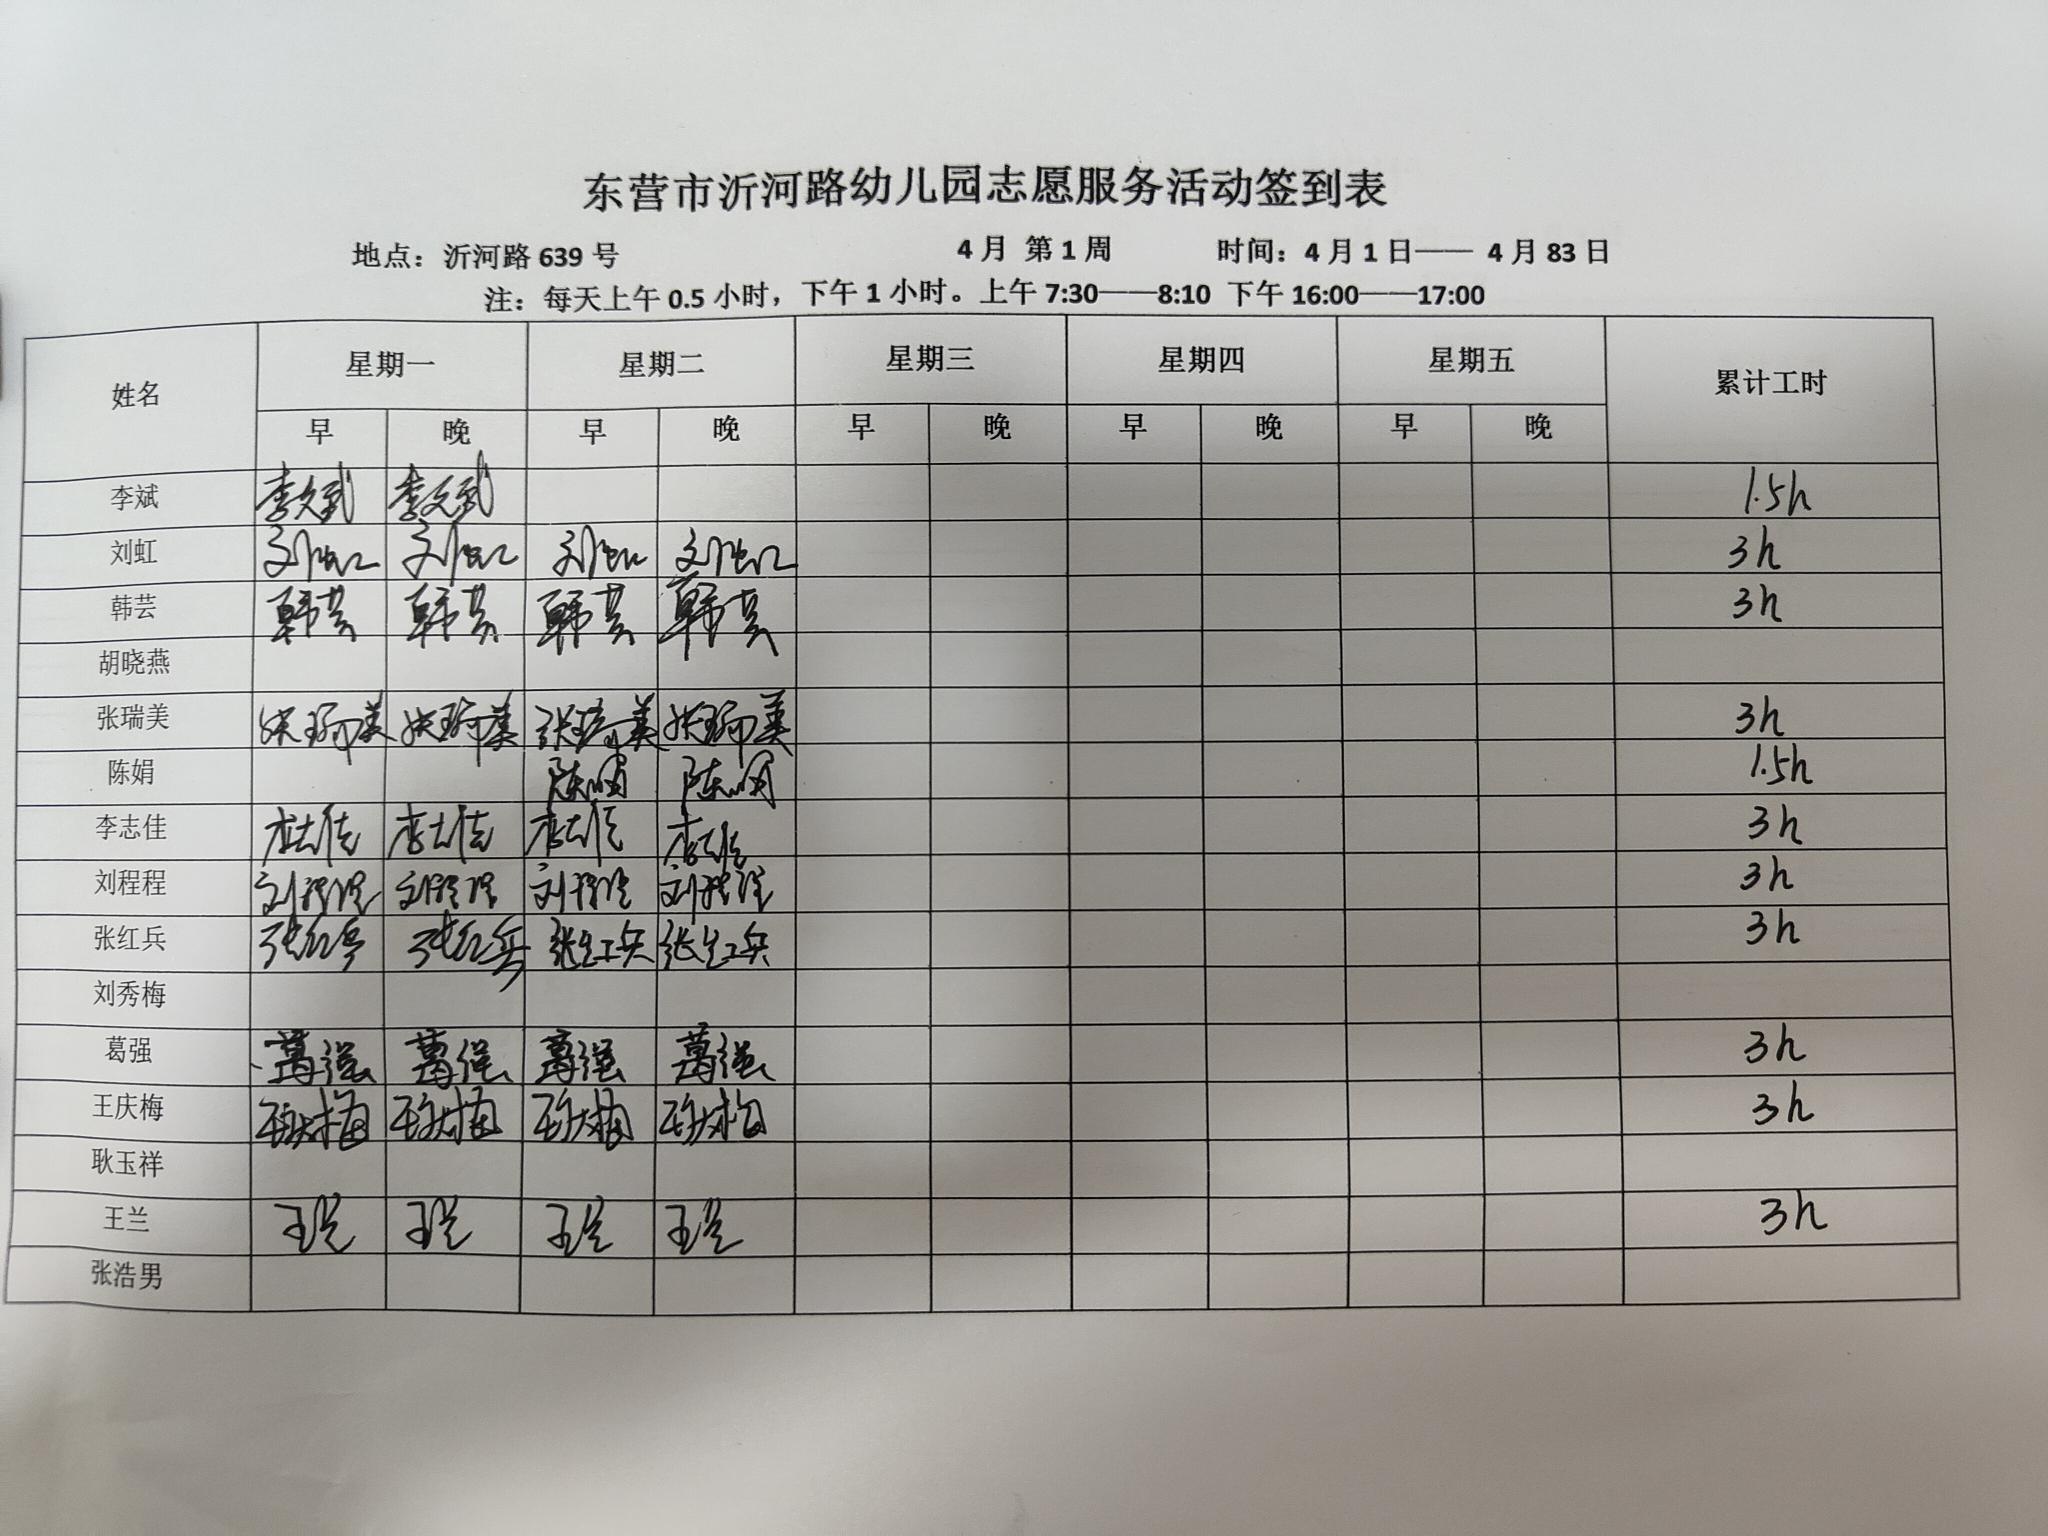 东营市沂河路幼儿园志愿服务活动签到表
地点：沂河路 639 号 4 月 第 1 周 时间：4 月 1 日—— 4 月 83 日
注：每天上午 0.5 小时，下午 1 小时。上午 7:30——8:10 下午 16:00——17:00
姓名 星期一 星期二 星期三 星期四 星期五 累计工时
早 晚 早 晚 早 晚 早 晚 早 晚
李斌 李文武 李文武 1.5h
刘虹 刘虹 刘虹 刘虹 刘虹 3h
韩芸 韩芸 韩芸 韩芸 韩芸 3h
胡晓燕
张瑞美 张瑞美 张瑞美 张瑞美 张瑞美 3h
陈娟 陈娟 陈娟 1.5h
李志佳 李志佳 李志佳 李志佳 李志佳 3h
刘程程 刘程程 刘程程 刘程程 刘程程 3h
张红兵 张红兵 张红兵 张红兵 张红兵 3h
刘秀梅
葛强 葛强 葛强 葛强 葛强 3h
王庆梅 王庆梅 王庆梅 王庆梅 王庆梅 3h
耿玉祥
王兰 王兰 王兰 王兰 王兰 3h
张浩男